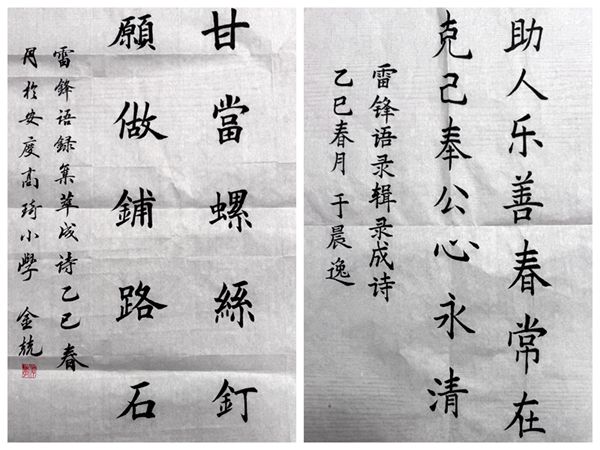 甘當螺絲釘
願做鋪路石
雷鋒语録集萃成诗乙巳春
月於安度高琦小學 金兢
助人乐善春常在
克己奉公心永清
雷锋语录辑录成诗
乙巳春月 于晨逸